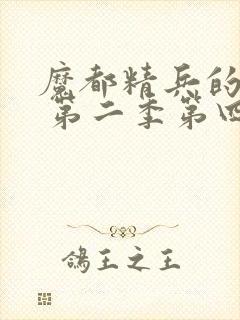 魔都精兵的
第二季第四
鸽王之王